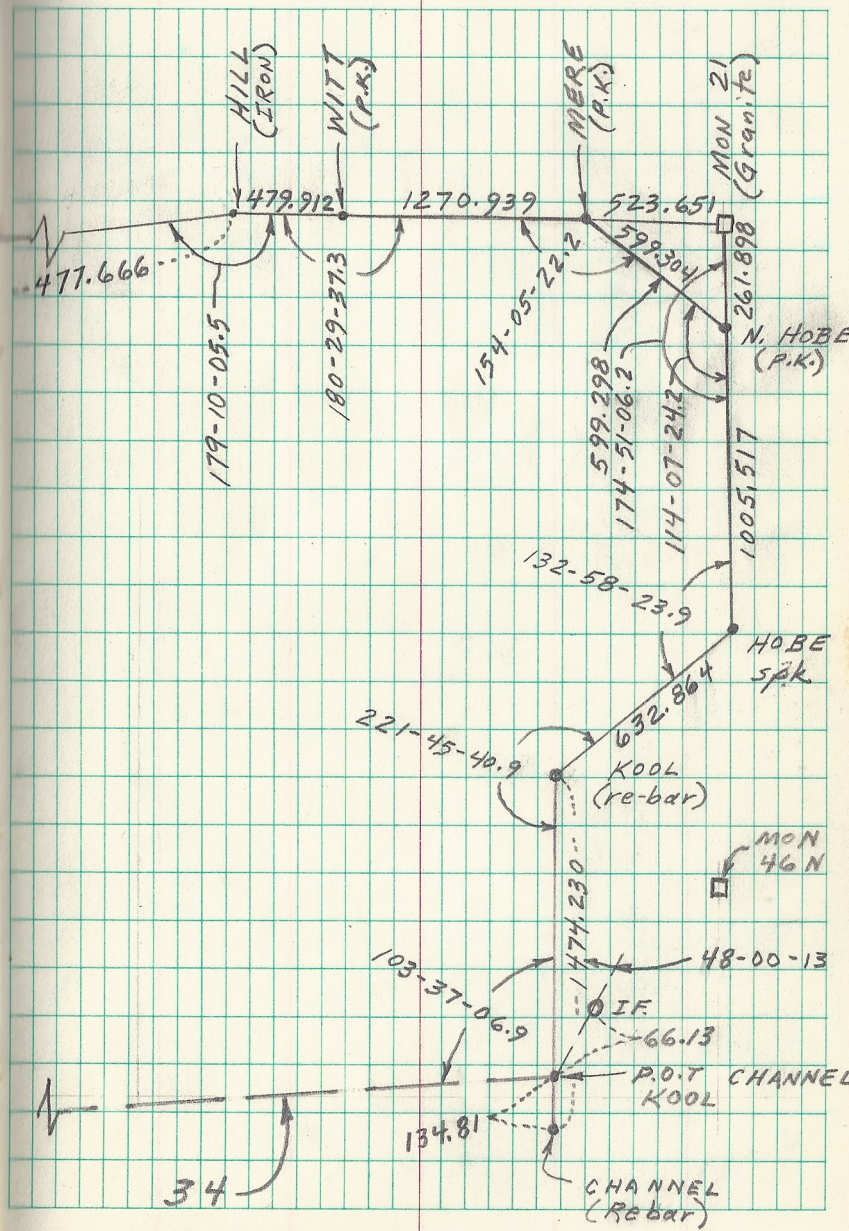 HILL
(IRON)
WITT
(P.K.)
MERE
(P.K.)
MON 21
(Granite)
479.912
1270.939
523.651
477.666
599.304
261.898
179-10-05.5
180-29-37.3
154-05-22.2
N. HOBE
(P.K.)
599.298
174-51-06.2
114-07-24.2
1005.517
132-58-23.9
HOBE
spk
632.864
221-45-40.9
KOOL
(re-bar)
MON
46 N
1474.230
103-37-06.9
48-00-13
I.F.
66.13
P.O.T CHANNEL
KOOL
134.81
34
CHANNEL
(Rebar)